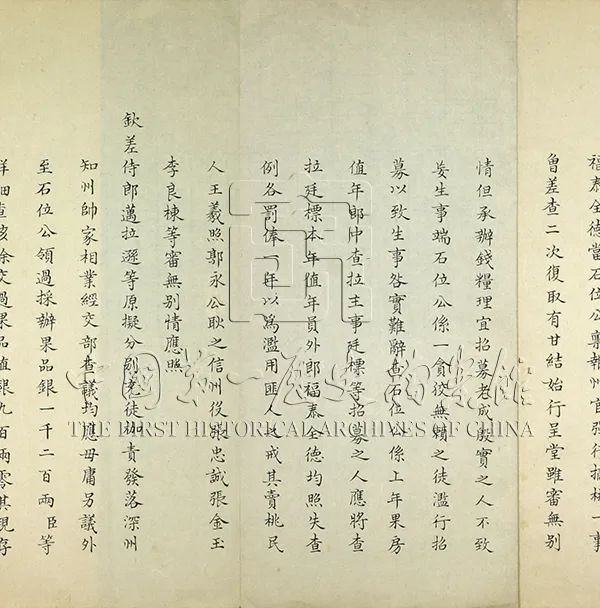 福泰全德當石位公稟報州官發行摘桃一事
曾差查二次復取有甘結始行呈堂雖審無別
情但承辦錢糧理宜招募老成殷實之人不致
妄生事端石位公係一貧狡無賴之徒濫行招
募以致生事咎實難辭查石位公係上年果房
值年郎中查拉主事廷標等招募之人應將查
拉廷標本年值年員外郎福泰全德均照失查
例各罰俸一年以爲濫用匪人之戒其賣桃民
人王羲照郭永公耿之信州役張忠誠張金玉
李良棟等審無別情應照
欽差侍郎邁拉遜等原擬分別枷徒杖責發落深州
知州帥家相業經交部查議均應毋庸另議外
至石位公領過採辦果品銀一千二百兩臣等
詳細查核除交過果品值銀九百兩零其現存
中國第一歷史檔案館
THE FIRST HISTORICAL ARCHIVES OF CHINA